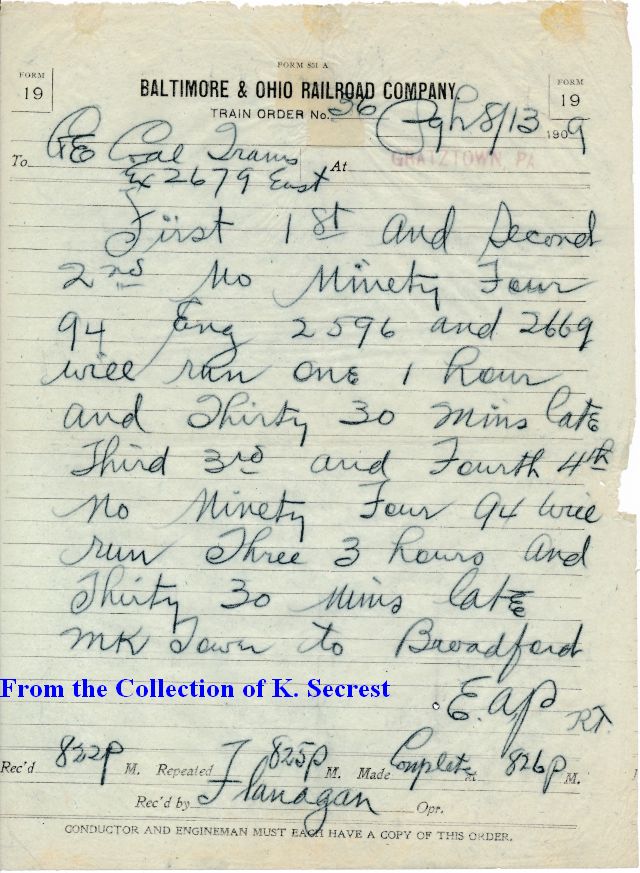 FORM 851 A
FORM
19
BALTIMORE & OHIO RAILROAD COMPANY
FORM
19
TRAIN ORDER No. 36 Pgh 8/13 1909
To C&E Coal Trains At GRATZTOWN, PA
Ex 2679 East
First 1st and Second
2nd No Ninety Four
94 Eng 2596 and 2669
will run one 1 hour
and Thirty 30 mins late
Third 3rd and Fourth 4th
No Ninety Four 94 will
run Three 3 hours and
Thirty 30 mins late
MK Tower to Broadford
From the Collection of K. Secrest
E.A.P.
Rec'd 822P M. Repeated 825P M. Made Complete at 826P M.
Rec'd by Flanagan Opr.
CONDUCTOR AND ENGINEMAN MUST EACH HAVE A COPY OF THIS ORDER.